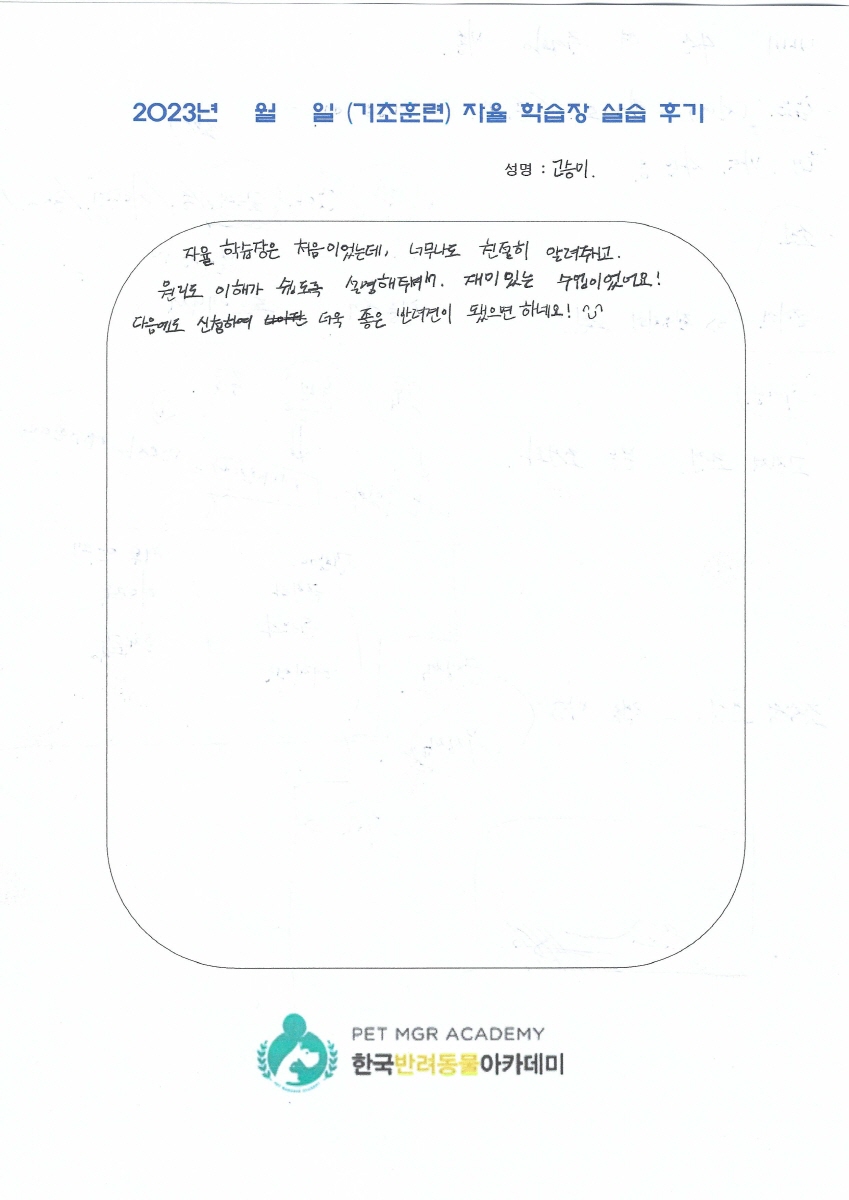 2023년 월 일 (기초훈련) 자율 학습장 실습 후기
성명 : 고승미.
자율 학습장은 처음이었는데, 너무나도 친절히 알려주시고.
원리도 이해가 쉽도록 설명해주셔서. 재미있는 수업이었어요!
다음에도 신청하여 더욱 좋은 반려견이 됐으면 하네요!
PET MGR ACADEMY
한국반려동물아카데미